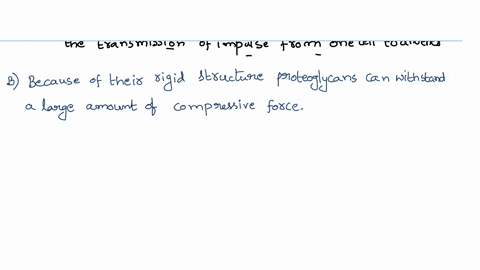 the transmission of impulse from one cell to
B) Because of their rigid structure proteoglycans can withstand
a large amount of compressive force.